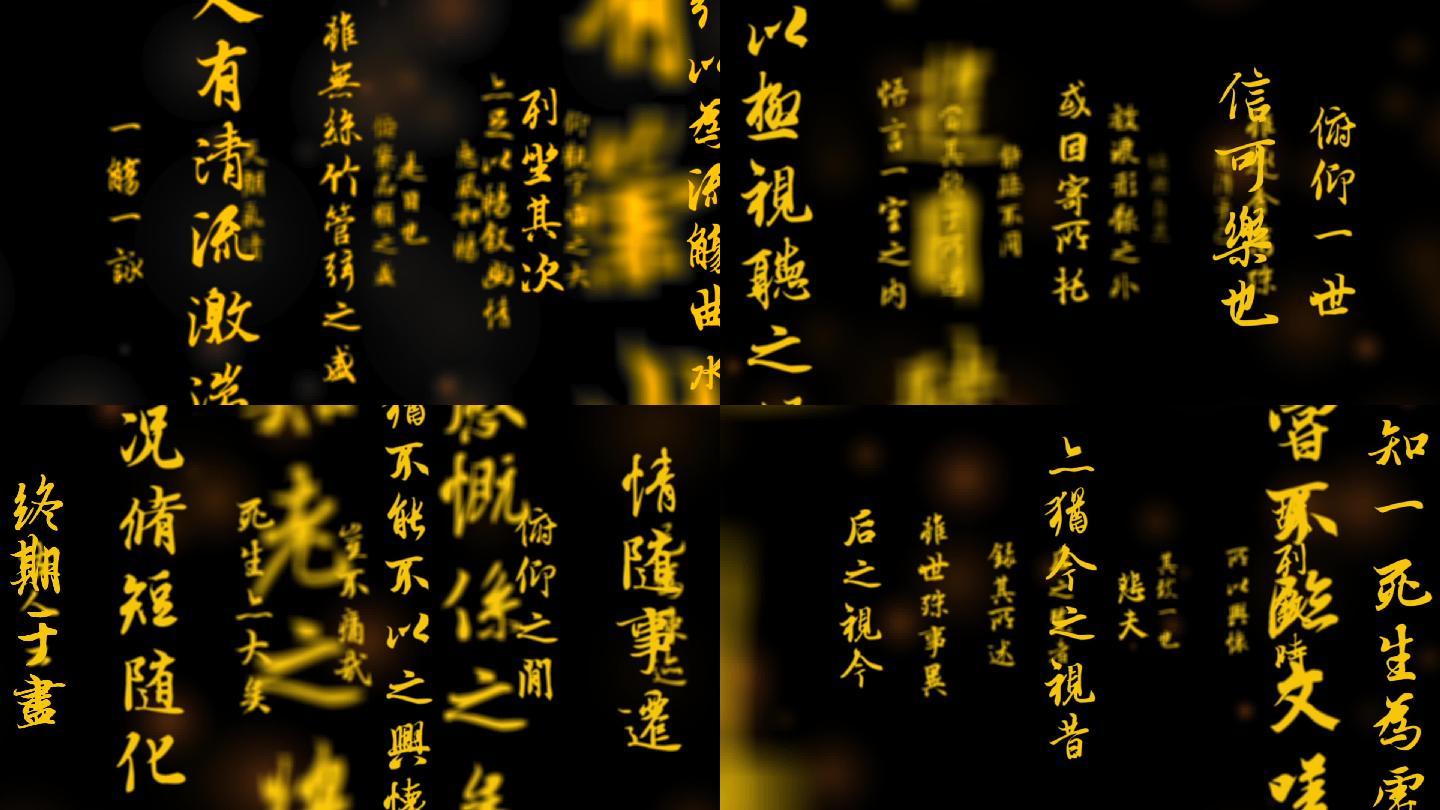 以為流觴曲水
列坐其次
亦足以暢敘幽情
惠風和暢
是日也
雖無絲竹管弦之盛
人有清流激湍
一觴一詠
俯仰一世
信可樂也
放浪形骸之外
或因寄所托
靜躁不同
悟言一室之内
以極視聽之
情隨事遷
俯仰之間
慨係之矣
猶不能不以之興懷
豈不痛哉
老之
死生亦大矣
況脩短随化
终期於盡
知一死生為虛
嘗不臨文嗟
所以興懷
其致一也
悲夫
亦猶今之視昔
錄其所述
雖世殊事異
后之視今